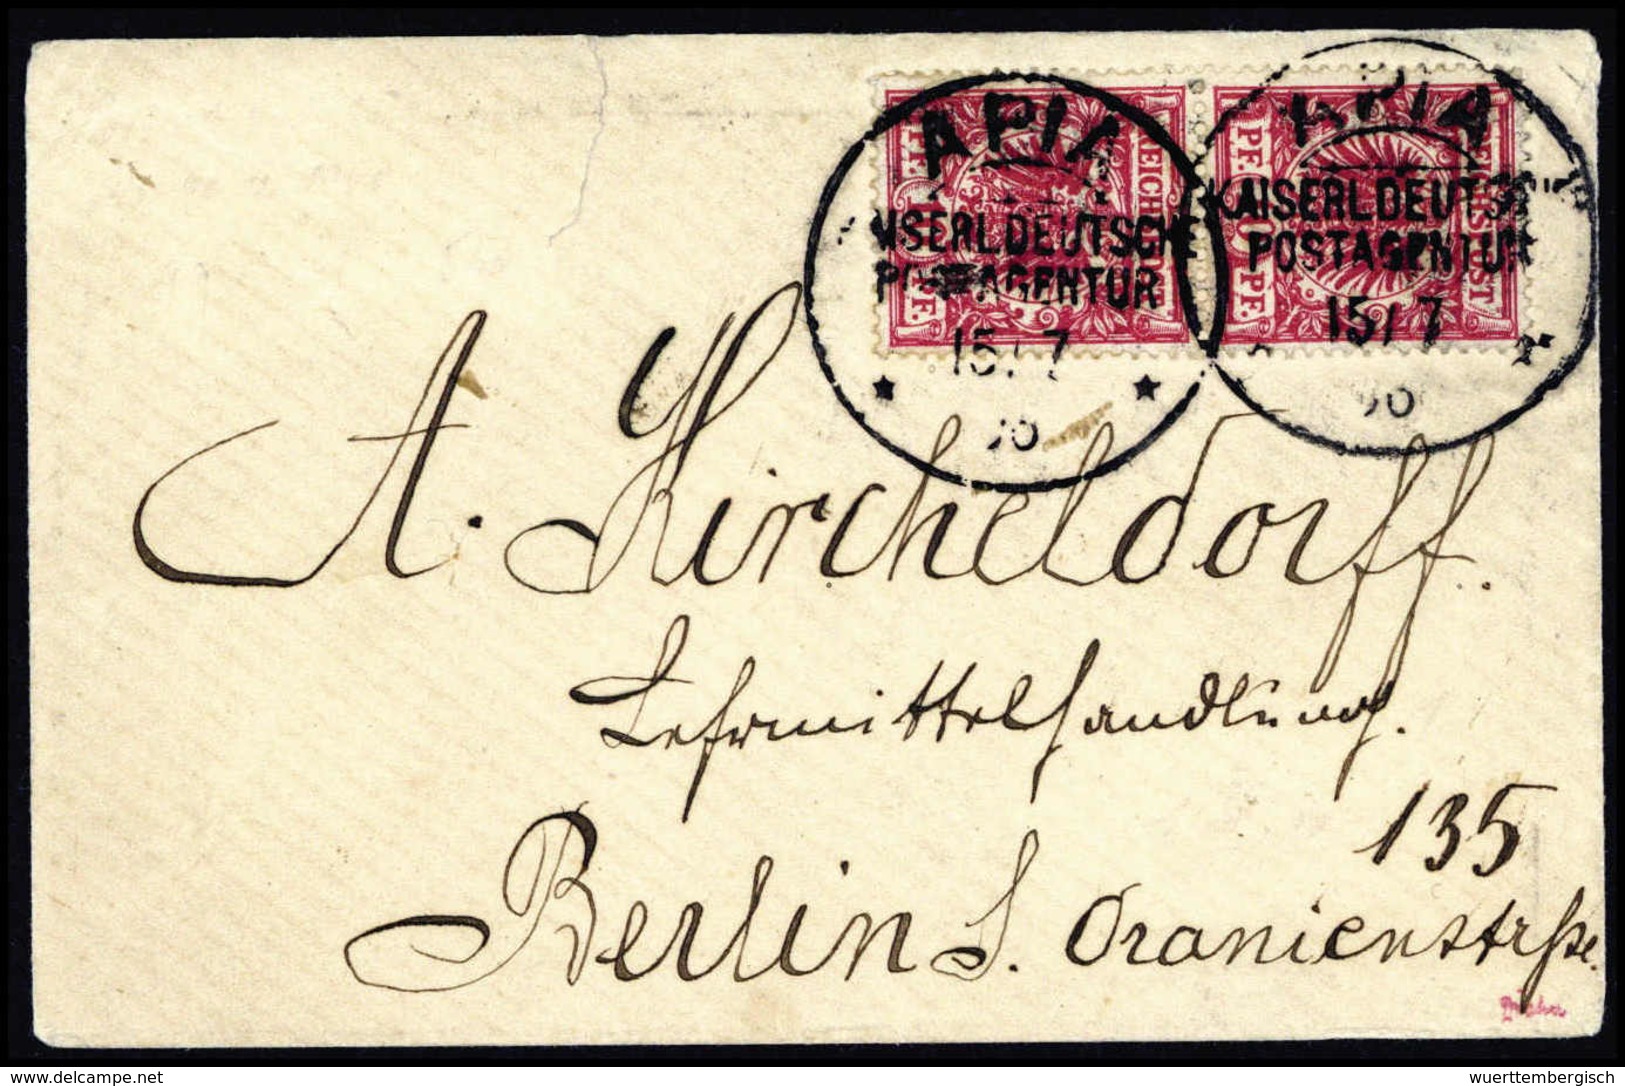 APIA
KAISERL DEUTSCHE
POSTAGENTUR
15/7
APIA
KAISERL DEUTSCHE
POSTAGENTUR
15/7
REICHSPOST
10 PF.
REICHSPOST
10 PF.
A. Kircheldorff.
Lehrmittelhandlung.
135
Berlin S. Oranienstrße.
delcampe.net
wuerttembergisch